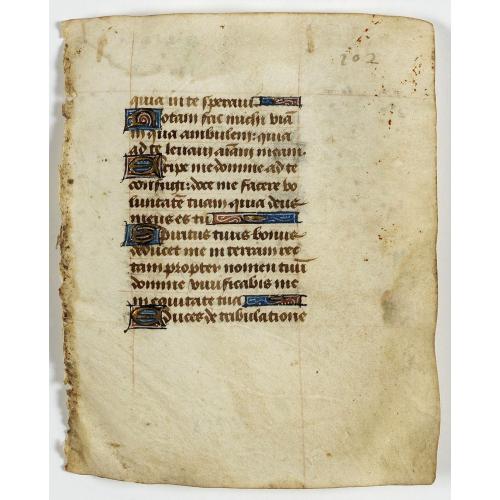 202
quia in te speraui
Notam fac michi uiã
in qua ambulem: quia
ad te leuaui aiãm meam.
Eripe me domine ad te
confugi: doce me facere uo
luntatē tuam quia deus
meus es tu
Spiritus tuus bonus
deducet me in terram rec
tam propter nomen tuũ
domine uiuificabis me
in equitate tua
Educes de tribulatione